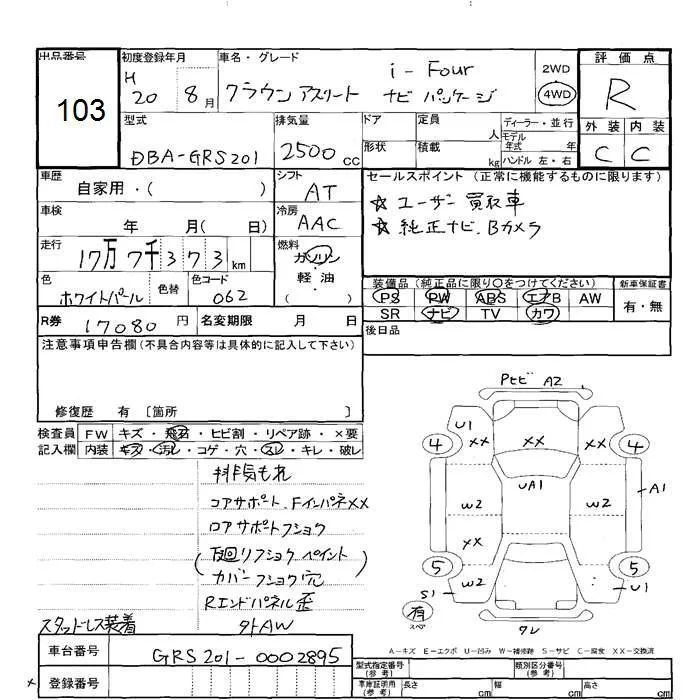 出品番号
103
初度登録年月
H 20 8月
車名・グレード
i-Four
クラウンアスリート ナビパッケージ
2WD
4WD
評価点
R
外装 内装
C C
型式
DBA-GRS201
排気量
2500cc
ドア
形状
定員 人
積載 kg
ディーラー・並行
モデル年式 年
ハンドル 左・右
車歴
自家用・( )
シフト
AT
セールスポイント(正常に機能するものに限ります)
☆ユーザー買取車
☆純正ナビ、Bカメラ
車検
年 月( 日)
冷房
AAC
走行
17万7千373km
燃料
ガソリン
・
軽油
( )
色
ホワイトパール
色替
色コード
062
装備品(純正品に限り○をつけてください)
新車保証書
PS PW ABS エアB AW
SR ナビ TV カワ
有・無
R券 17080円
名変期限 月 日
後日品
注意事項申告欄(不具合内容等は具体的に記入して下さい)
修復歴 有 〔箇所 〕
検査員記入欄
FW キズ・飛石・ヒビ割・リペア跡・×要
内装 キズ・汚レ・コゲ・穴・スレ・キレ・破レ
排気もれ
コアサポート、FインパネXX
ロアサポートフショク
(下廻リフショク ペイント)
カバーフショク穴
Rエンドパネル歪
スタッドレス装着
外AW
Pヒビ A2
U1
XX
XX
XX
4
4
UA1
A1
W2
W2
XX
5
5
W2
S1
U1
有
スペア
ワレ
A-キズ E-エクボ U-凹み W-補修跡 S-サビ C-腐食 XX-交換済
車台番号
GRS201-0002895
登録番号
型式指定番号(参考)
類別区分番号(参考)
車庫証明用(参考)
長さ cm
幅 cm
高さ cm